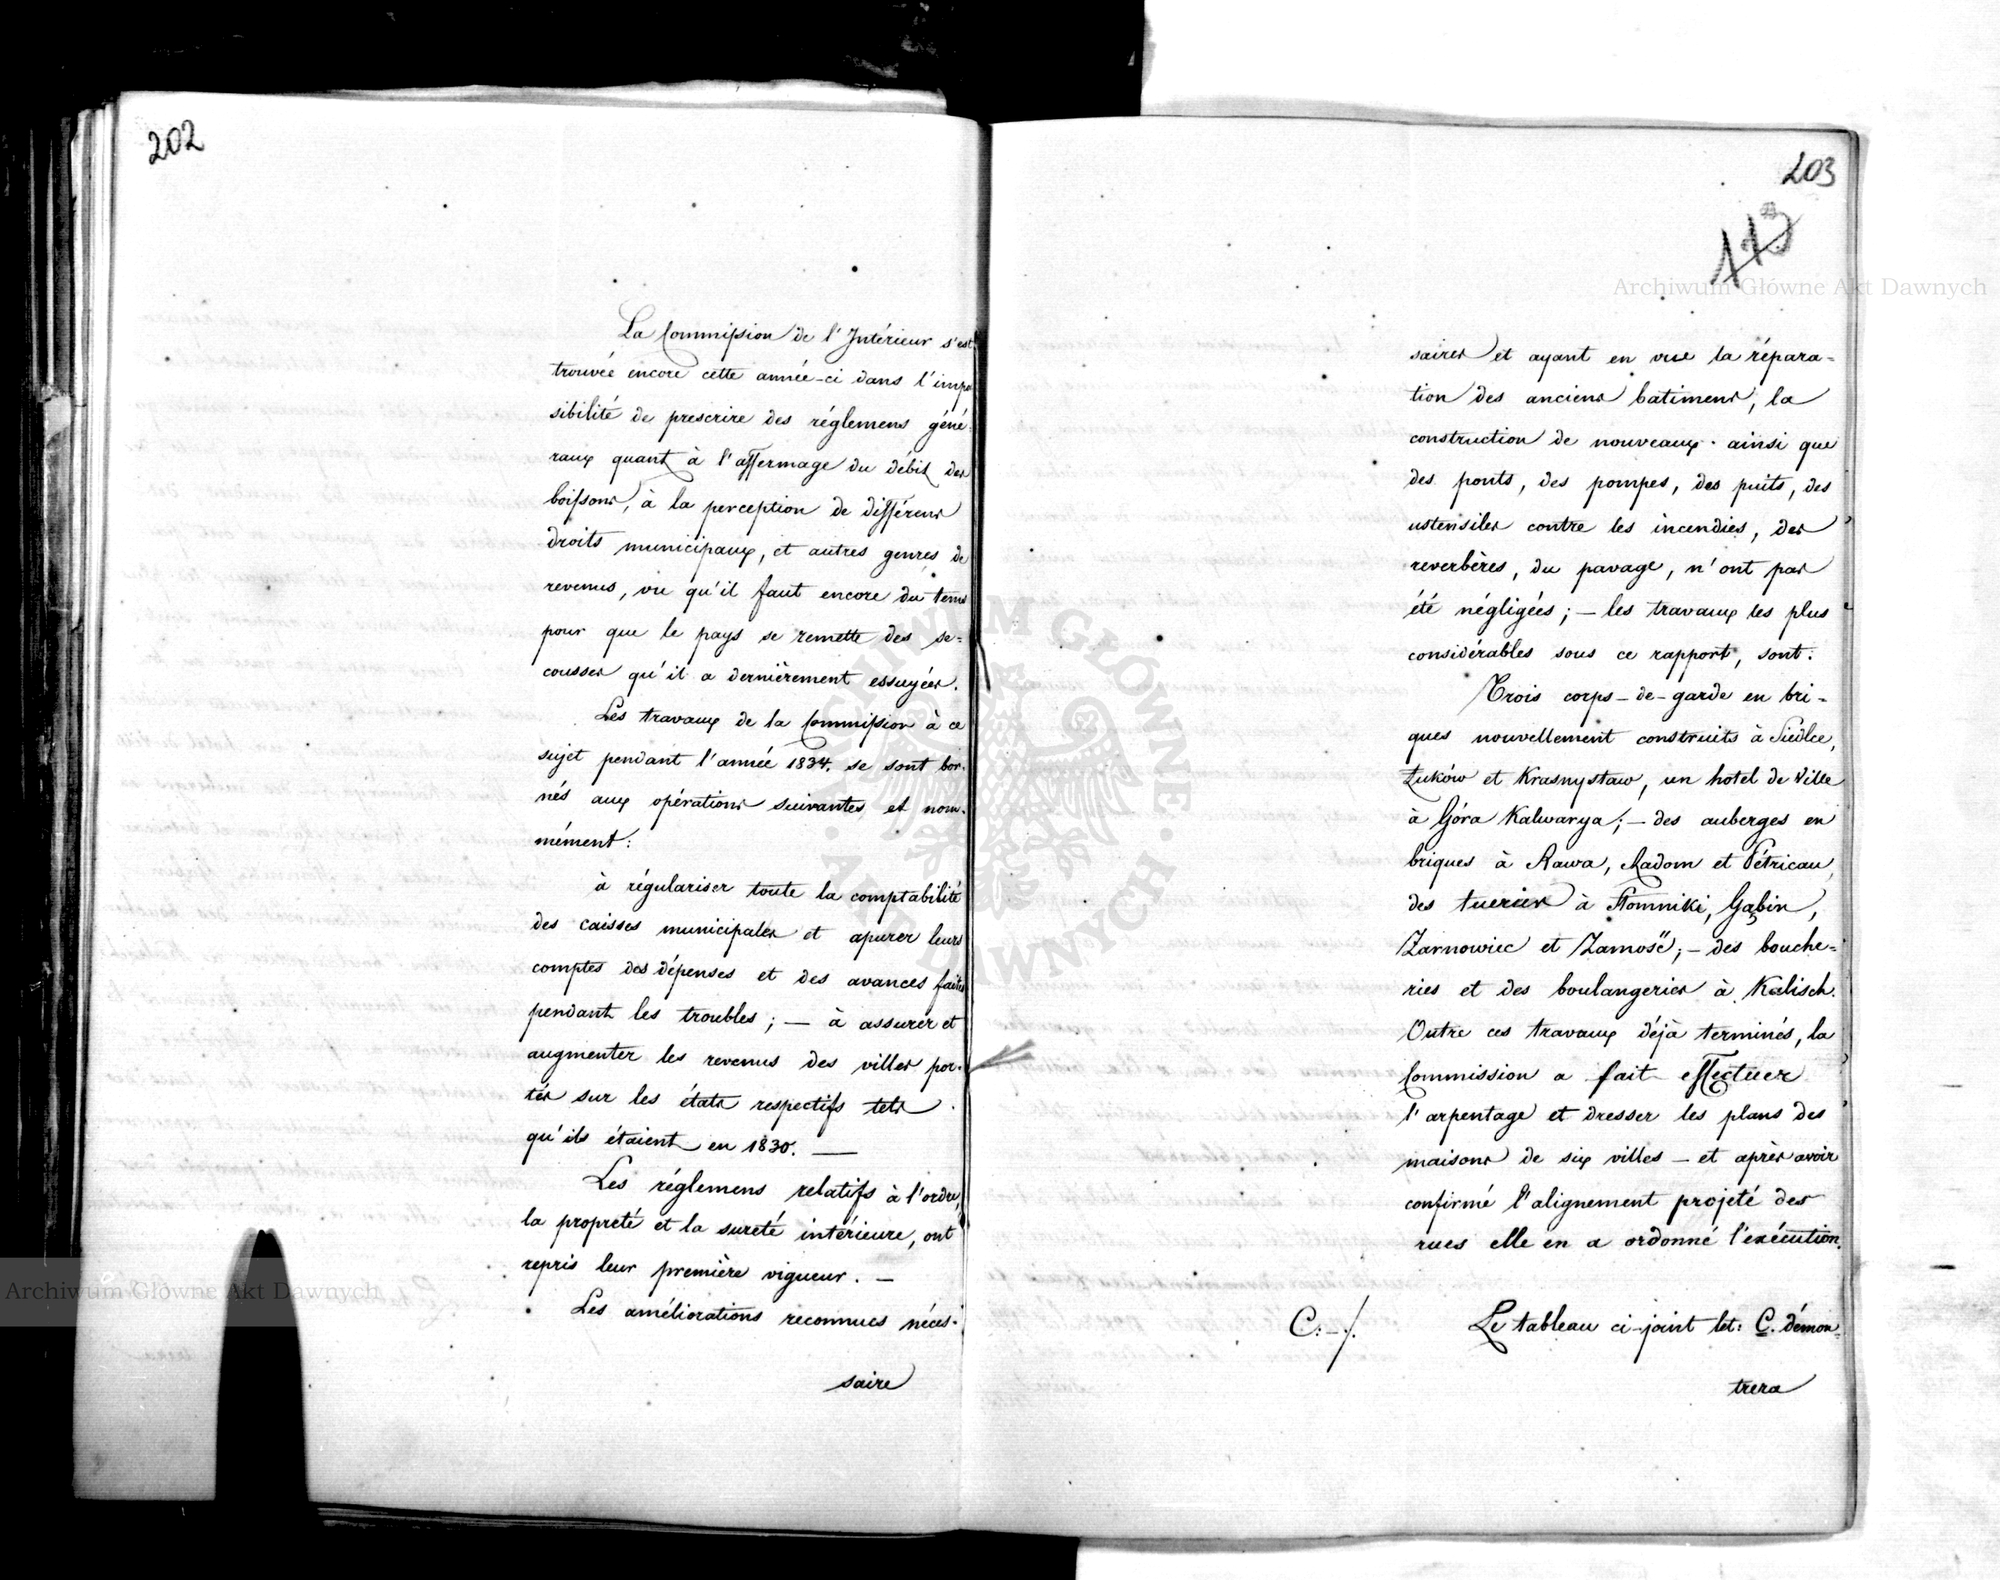 202
La Commission de l'Intérieur s'est
trouvée encore cette année-ci dans l'impo
sibilité de prescrire des réglemens géné-
raux quant à l'affermage du débit des
boissons, à la perception de différens
droits municipaux, et autres genres de
revenus, vu qu'il faut encore du tems
pour que le pays se remette des se=
cousses qu'il a dernièrement essuyées.
Les travaux de la Commission à ce
sujet pendant l'année 1834. se sont bor-
nés aux opérations suivantes et nom-
mément:
à régulariser toute la comptabilité
des caisses municipales et apurer leurs
comptes des dépenses et des avances faites
pendant les troubles; — à assurer et
augmenter les revenus des villes por-
tés sur les états respectifs tels
qu'ils étaient en 1830. —
Les réglemens relatifs à l'ordre,
la propreté et la sureté intérieure, ont
repris leur première vigueur. —
Les améliorations reconnues néces-
saire
203
113
saires et ayant en vue la répara=
tion des anciens batimens, la
construction de nouveaux ainsi que
des ponts, des pompes, des puits, des
ustensiles contre les incendies, des
reverbères, du pavage, n'ont pas
été négligées; — les travaux les plus
considérables sous ce rapport, sont:
Trois corps-de-garde en bri-
ques nouvellement construits à Siedlce,
Łuków et Krasnystaw, un hotel de Ville
à Góra Kalwarya; — des auberges en
briques à Rawa, Radom et Pétricau,
des tueries à Słomniki, Gąbin,
Zarnowiec et Zamość; — des bouche-
ries et des boulangeries à Kalisch.
Outre ces travaux déjà terminés, la
Commission a fait effectuer
l'arpentage et dresser les plans des
maisons de six villes — et après avoir
confirmé l'alignement projeté des
rues elle en a ordonné l'exécution.
C:-/.
Le tableau ci-joint let: C. démon-
trera
Archiwum Główne Akt Dawnych
Archiwum Główne Akt Dawnych
ARCHIWUM GŁÓWNE · AKT DAWNYCH ·